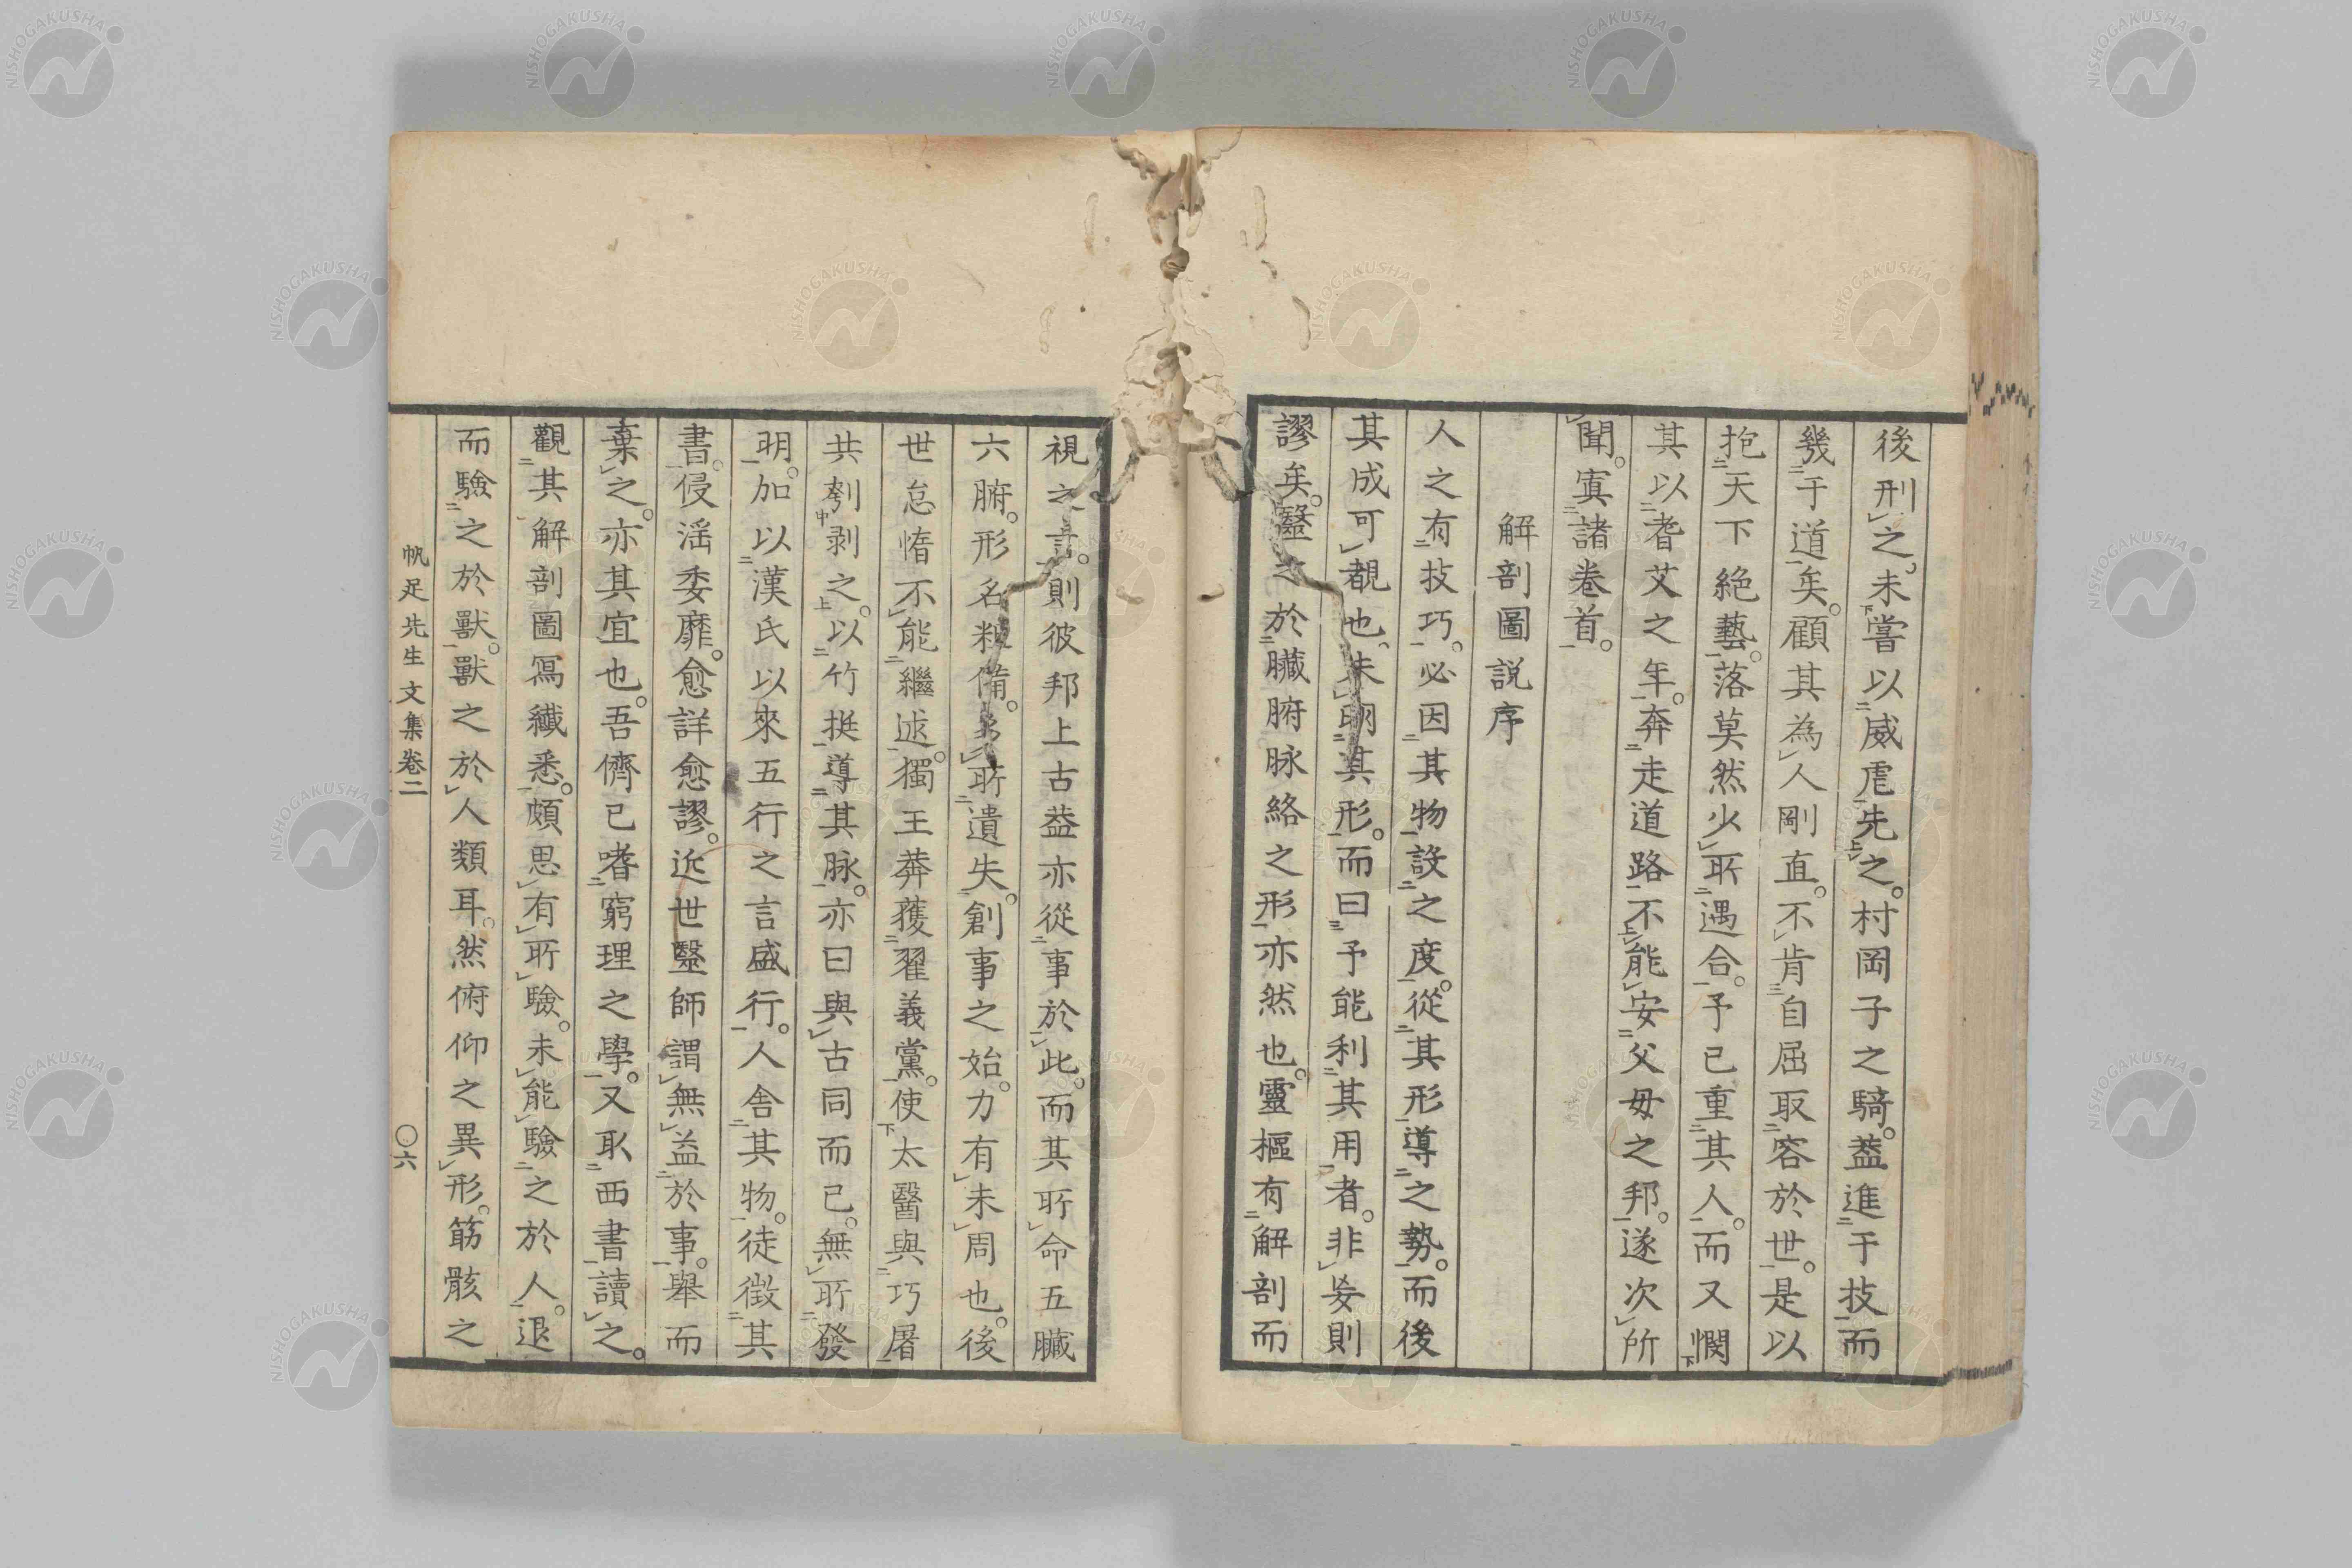 後刑之、未嘗以威虐先之。村岡子之騎。葢進于技而
幾于道矣。顧其為人剛直。不肯自屈取容於世。是以
抱天下絶藝。落莫然少所遇合。予已重其人。而又憫
其以耆艾之年。奔走道路不能安父母之邦。遂次所
聞。寘諸巻首。
解剖圖説序
人之有技巧。必因其物設之度。從其形導之勢。而後
其成可覩也、未明其形。而曰予能利其用者。非妄則
謬矣。醫之於臓腑脉絡之形亦然也。靈樞有解剖而
視之言。則彼邦上古葢亦從事於此。而其所命五臓
六腑。形名粗備。所遺失。創事之始。力有未周也。後
世怠惰不能繼述。獨王莽獲翟義黨。使太醫與巧屠
共刳剥之。以竹挺導其脉。亦曰與古同而已。無所發
明。加以漢氏以來五行之言盛行。人舎其物。徒徴其
書。侵淫委靡。愈詳愈謬。近世醫師謂無益於事。舉而
棄之。亦其宜也。吾儕已嗜窮理之學。又取西書讀之。
觀其解剖圖寫纎悉。頗思有所驗。未能驗之於人。退
而驗之於獸。獸之於人類耳。然俯仰之異形。筋骸之
帆足先生文集巻二
〇六
NISHOGAKUSHA